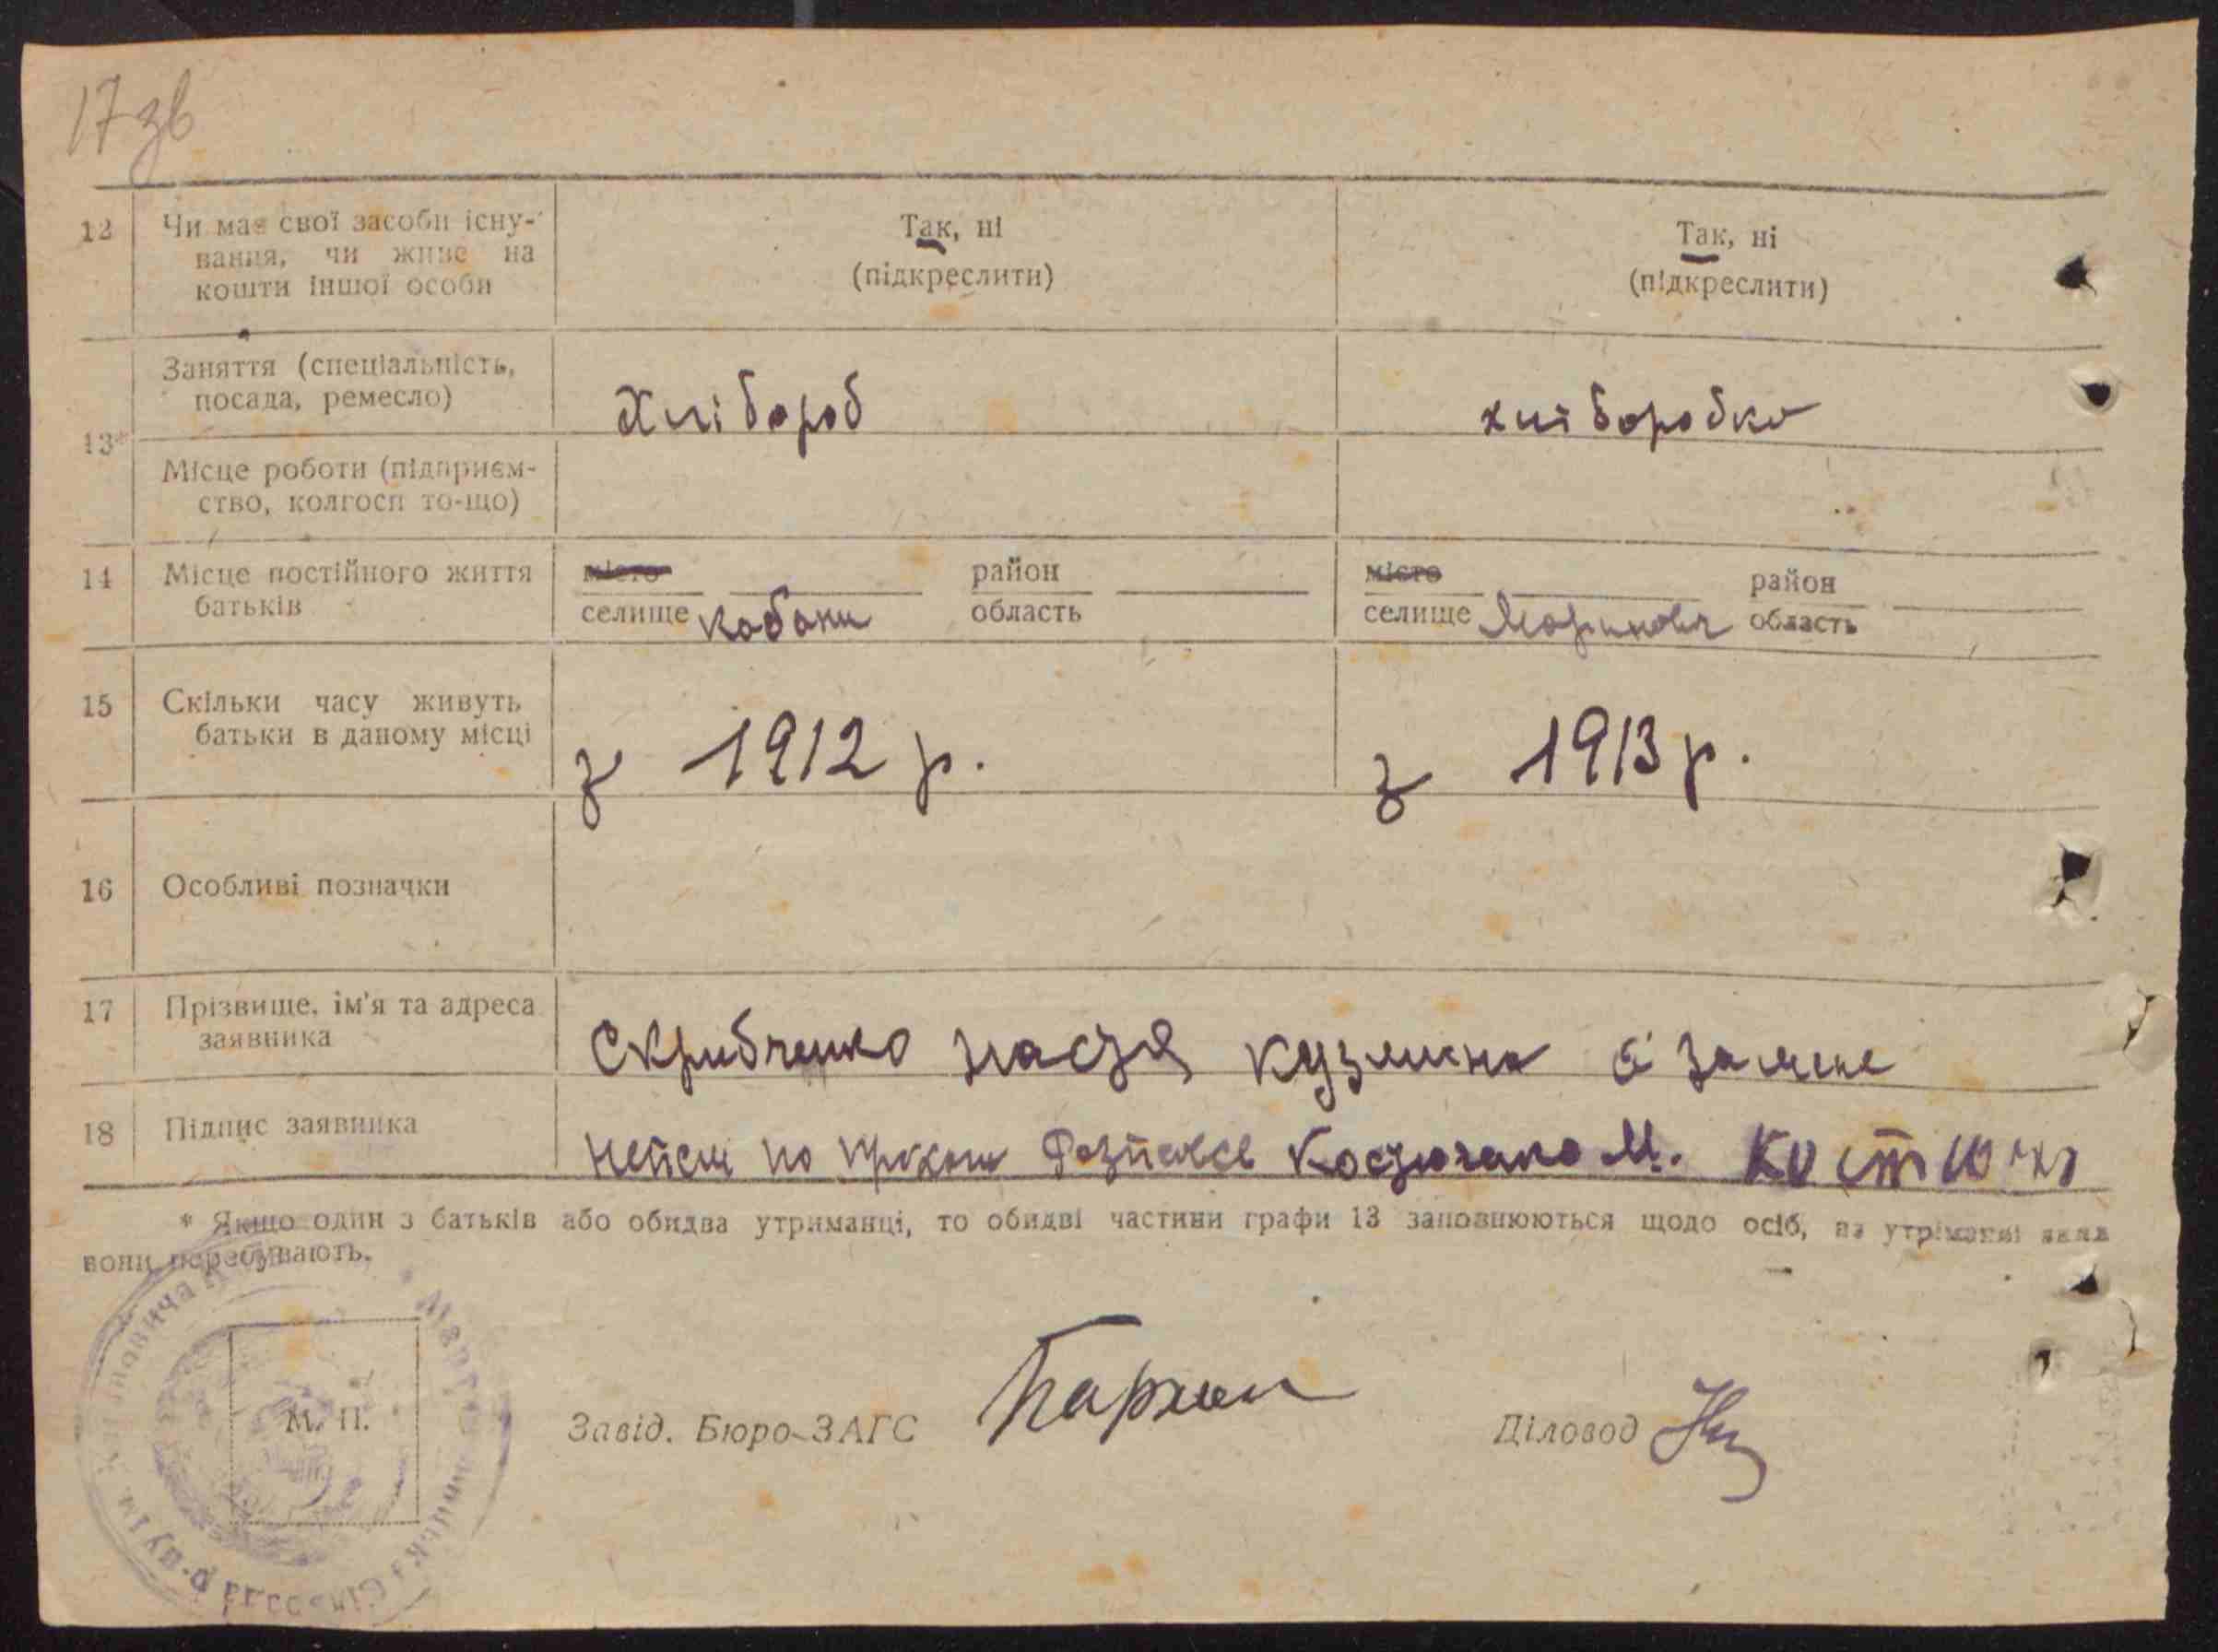 17 зв
12 Чи має свої засоби існу- Так, ні Так, ні
вання, чи живе на (підкреслити) (підкреслити)
кошти іншої особи
Заняття (спеціальність, Хлібороб хліборобка
посада, ремесло)
13*
Місце роботи (підприєм-
ство, колгосп то-що)
14 Місце постійного життя місто район місто район
батьків селище Кабани область селище Мартинович область
15 Скільки часу живуть
батьки в даному місці з 1912 р. з 1913 р.
16 Особливі позначки
17 Прізвище, ім'я та адреса
заявника Скрибченко Настя Кузмина а за
18 Підпис заявника по Костюченко М. Костюч
* Якщо один з батьків або обидва утриманці, то обидві частини графи 13 заповнюються щодо осіб, на утриманні яких
вони перебувають.
М. П.
Завід. Бюро ЗАГС Діловод